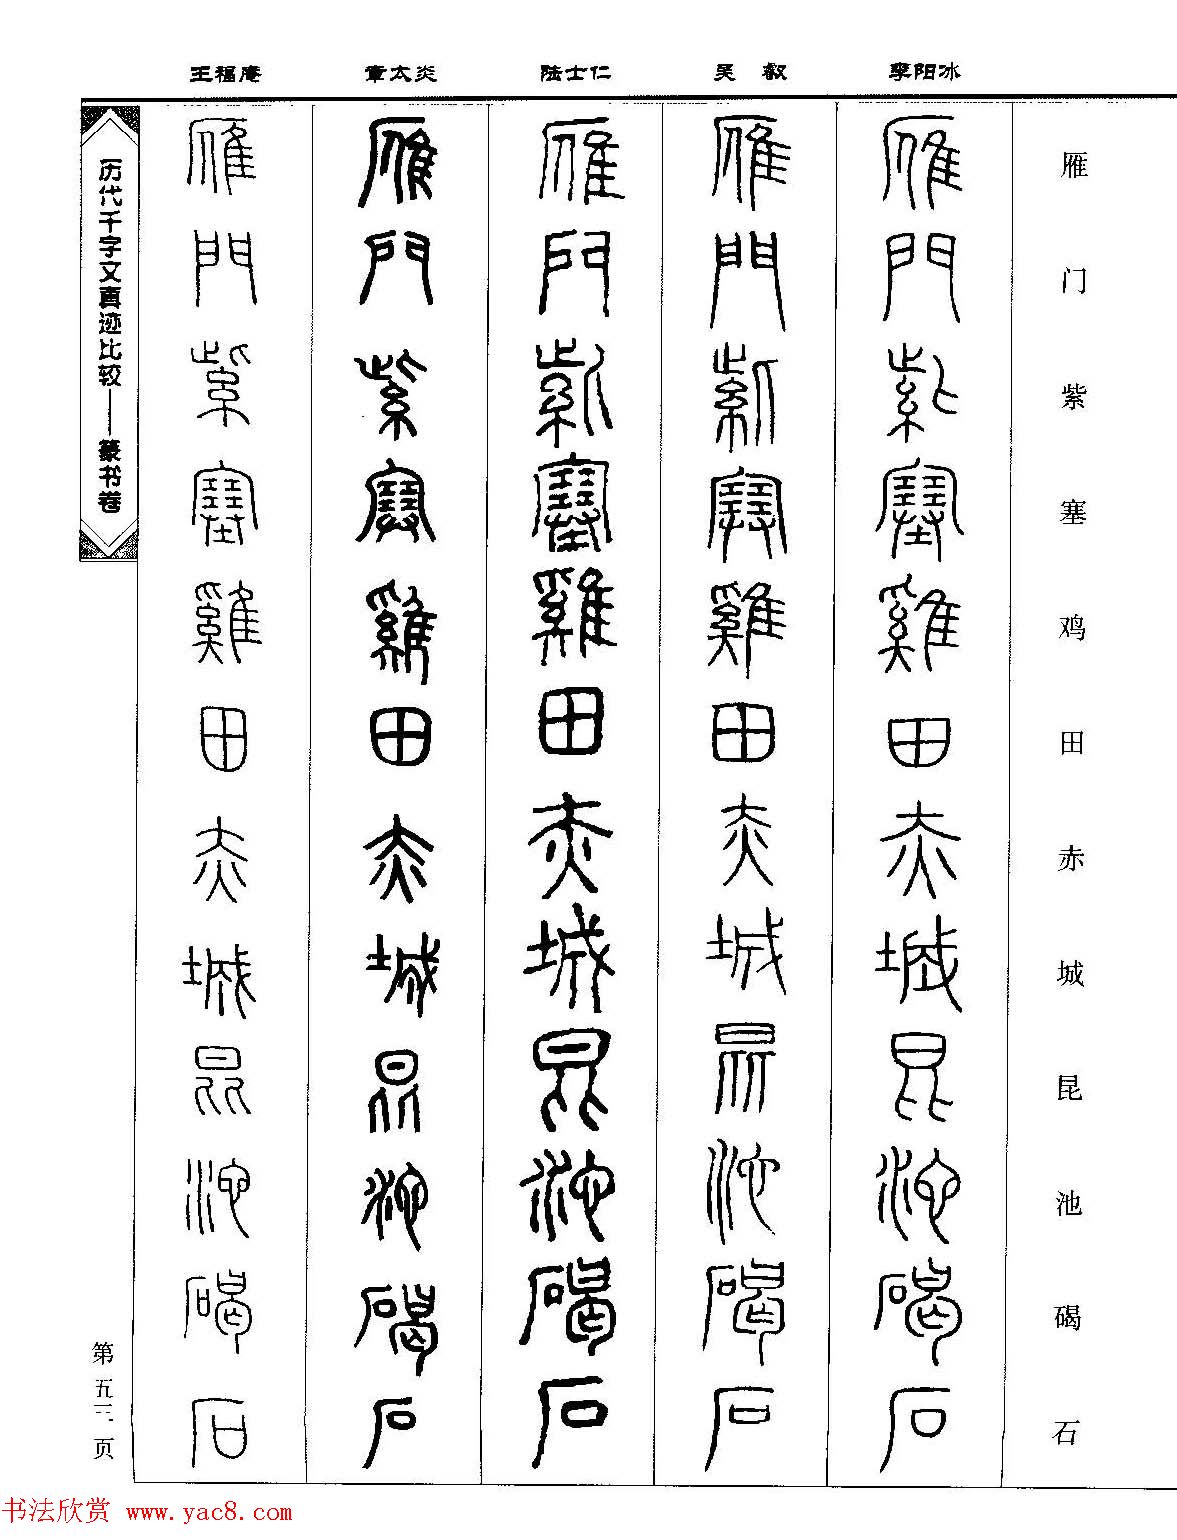 王福庵 章太炎 陆士仁 吴叡 李阳冰
雁门紫塞鸡田赤城昆池碣石
雁門紫塞雞田赤城昆池碣石
雁門紫塞雞田赤城昆池碣石
雁門紫塞雞田赤城昆池碣石
雁門紫塞雞田赤城昆池碣石
雁門紫塞雞田赤城昆池碣石
历代千字文真迹比较——篆书卷
第五三页
书法欣赏 www.yac8.com